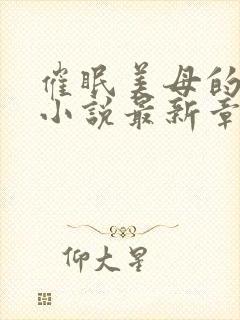 催眠美母的
小说最新章
仰大星